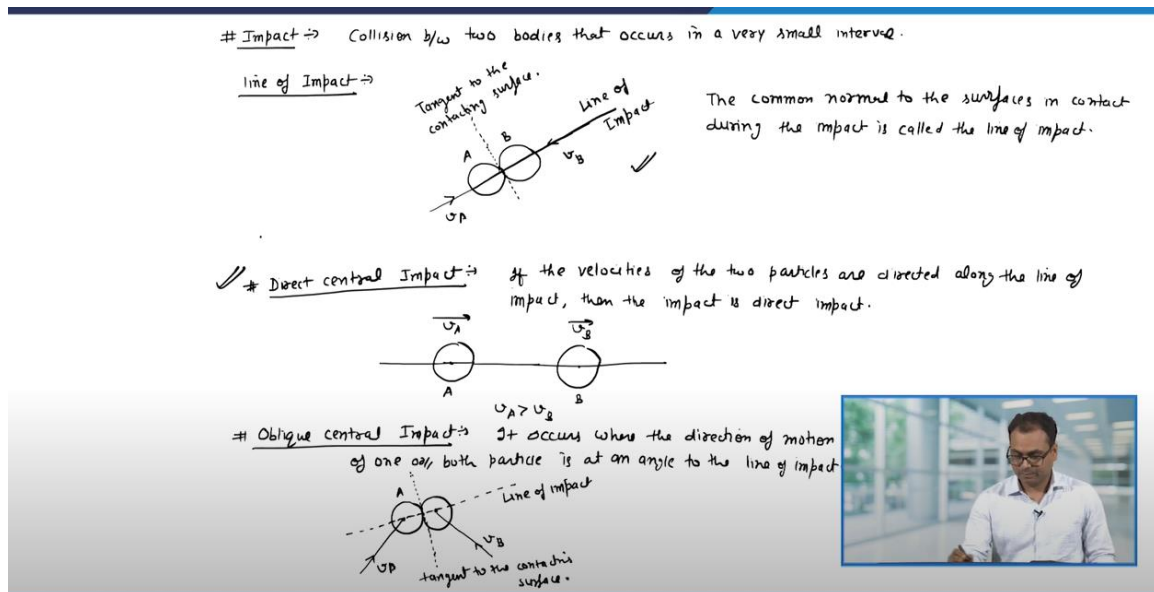 # Impact ÷> Collision b/w two bodies that occurs in a very small interval.
line of Impact ÷>
Tangent to the
contacting surface.
Line of
Impact
A
B
υA
υB
The common normal to the surfaces in contact
during the mpact is called the line of impact.
* Direct central Impact ÷> If the velocities of the two particles are directed along the line of
impact, then the impact is direct impact.
υA
υB
A
B
υA > υB
# Oblique central Impact ÷> It occurs where the direction of motion
of one or, both particle is at an angle to the line of impact
A
Line of impact
υA
υB
tangent to the
surface.